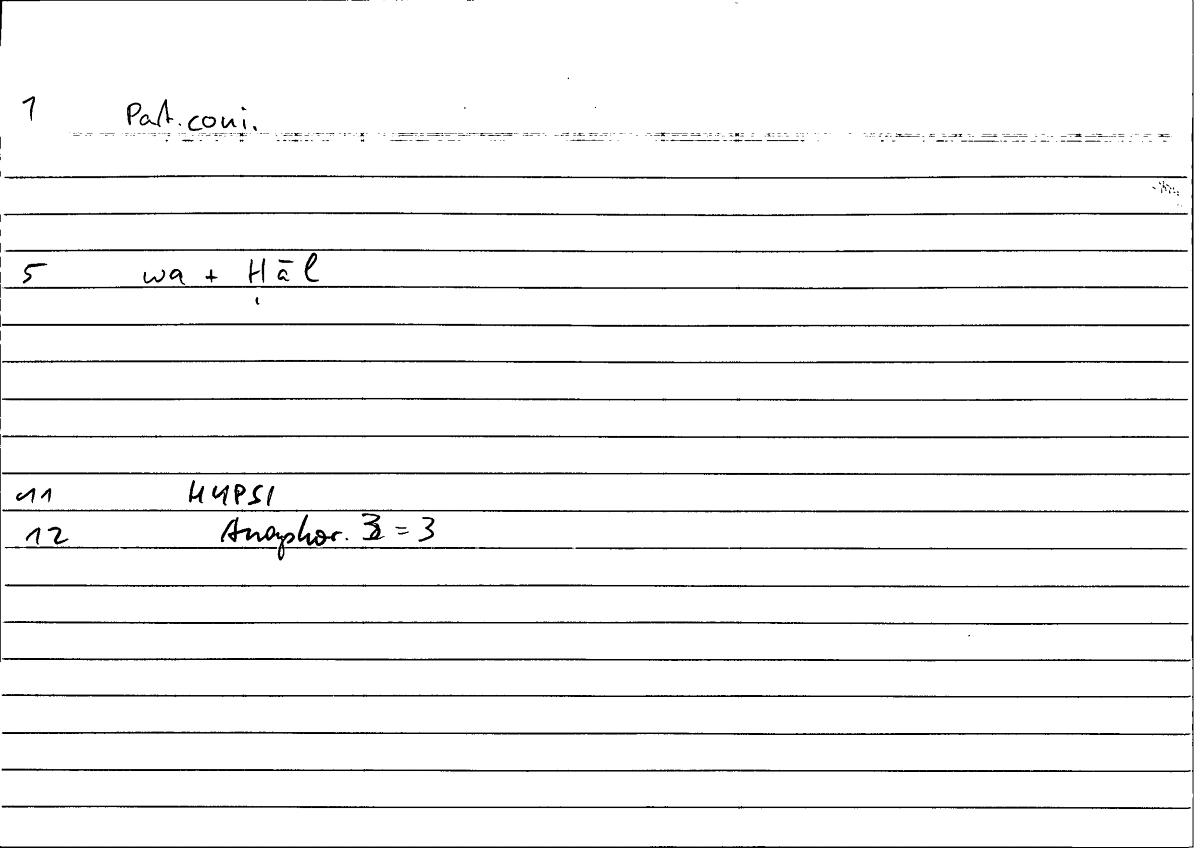 1 Part. coni.
5 wa + Ḥāl
11 HYPSI
12 Anaphor. 3 = 3